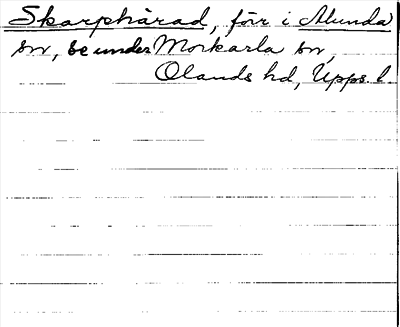 Skarphärad, förr i Alunda
sn, se under Morkarla sn,
Olands hd, Upps. l